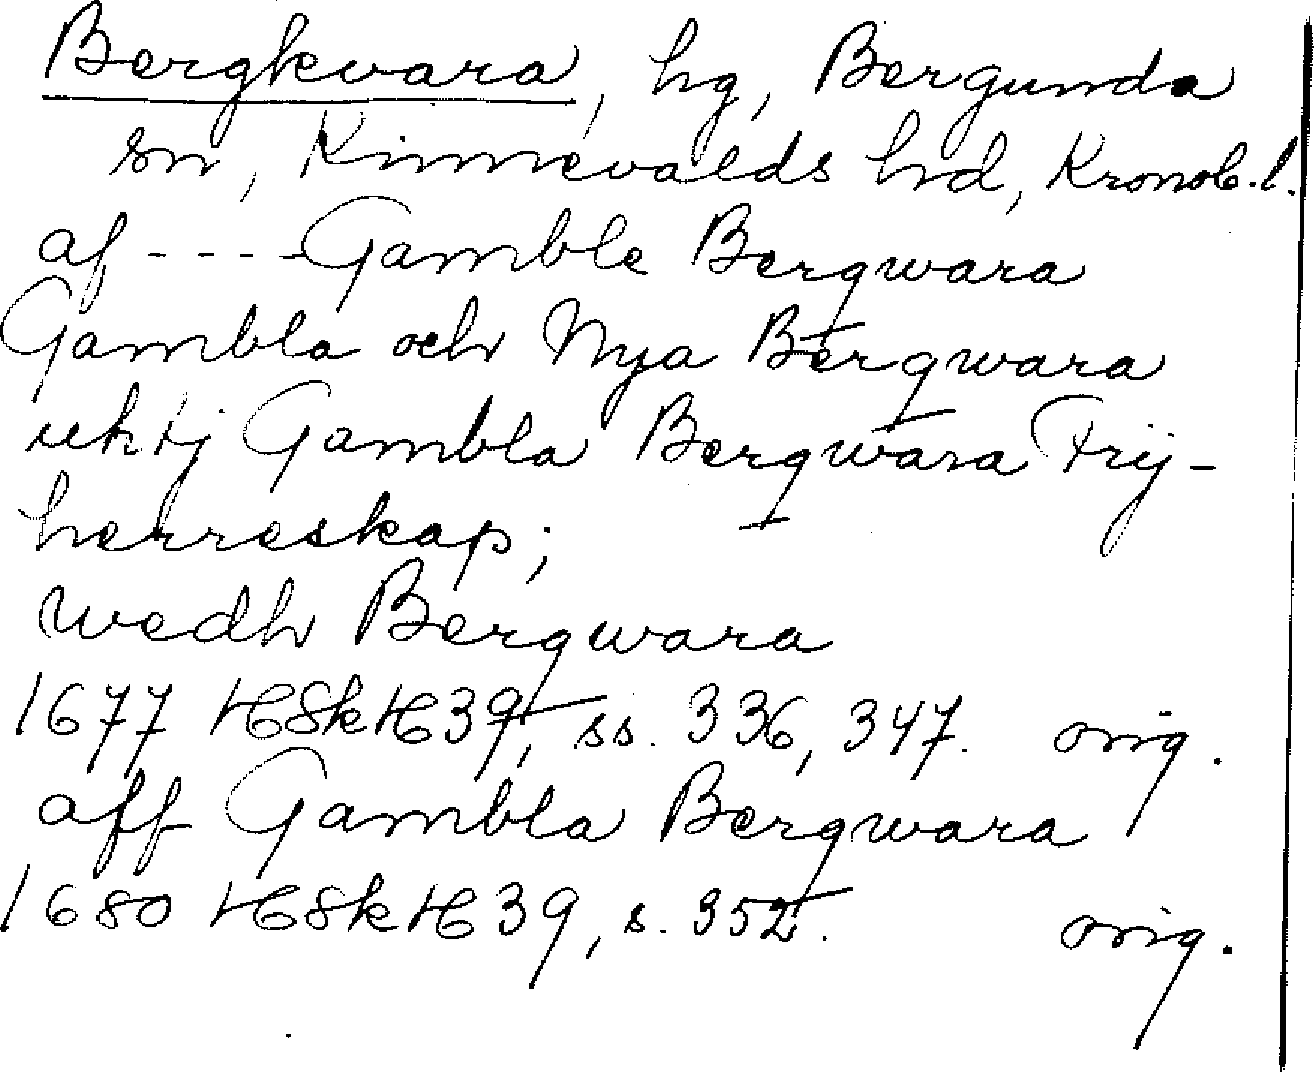 Bergkvara, hg, Bergunda
sn, Kinnevalds hd, Kronob. l.
af - - - - Gamble Bergwara
Gambla och Nya Bergwara
uthj Gambla Bergwara Frij-
herreskap;
wedh Bergwara
1677 HSkH 39, ss. 336, 347. orig.
aff Gambla Bergwara
1680 HSkH 39, s. 352. orig.